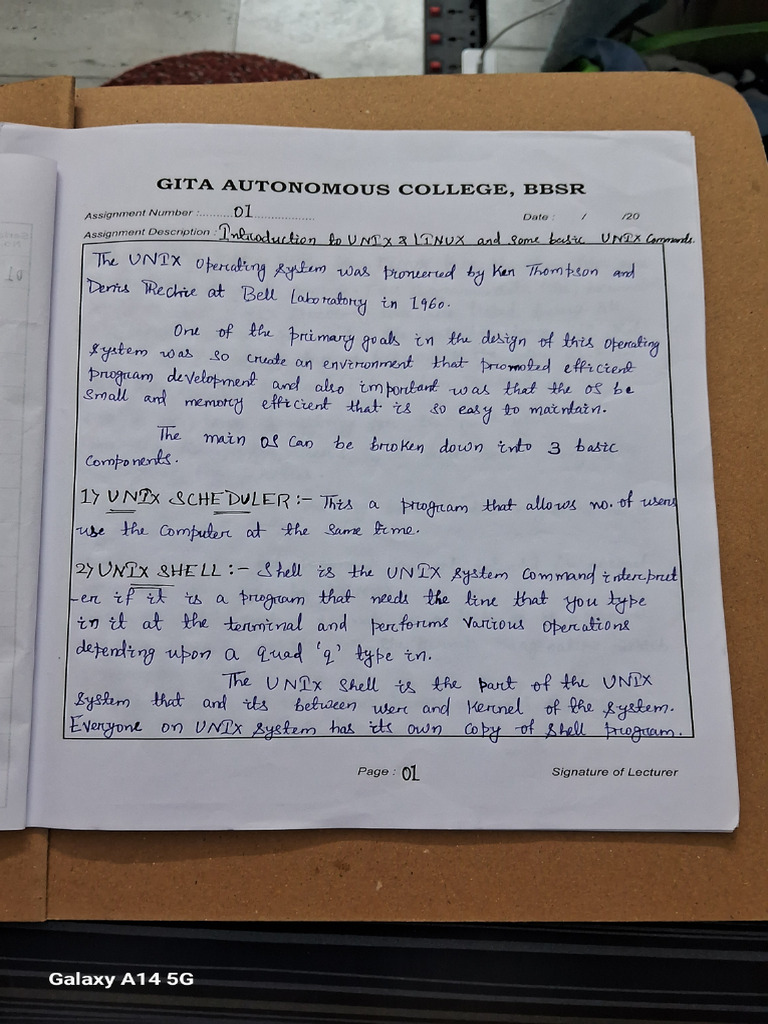 GITA AUTONOMOUS COLLEGE, BBSR
Assignment Number :..........01....................
Date : / /20
Assignment Description : Introduction to UNIX & LINUX and some basic UNIX Commands.
The UNIX operating system was pioneered by Ken Thompson and
Denis Rechie at Bell Laboratory in 1960.
One of the primary goals in the design of this operating
system was so create an environment that promoted efficient
program development and also important was that the OS be
small and memory efficient that is so easy to maintain.
The main OS can be broken down into 3 basic
components.
1) UNIX SCHEDULER :- This a program that allows no. of users
use the computer at the same time.
2) UNIX SHELL :- Shell is the UNIX system command interpret
-er if it is a program that needs the line that you type
in it at the terminal and performs various operations
depending upon a quad 'q' type in.
The UNIX shell is the part of the UNIX
system that and its between user and kernel of the system.
Everyone on UNIX system has its own copy of shell program.
Page : 01
Signature of Lecturer
Galaxy A14 5G